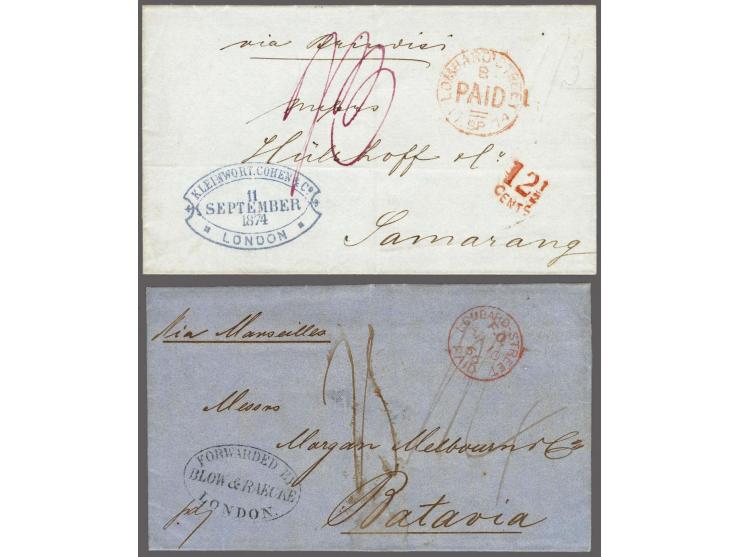 via Brindisi
LOMBARD STREET
B
PAID
SP 74
Messrs
Hülshoff & Cº
12½
CENTS
KLEINWORT, COHEN & Cº
11
SEPTEMBER
1874
LONDON
Samarang
Via Marseilles
LOMBARD-STREET
PAID
Messrs
Morgan Melbourn & Co
FORWARDED BY
BLOW & RAECKE
LONDON.
Batavia